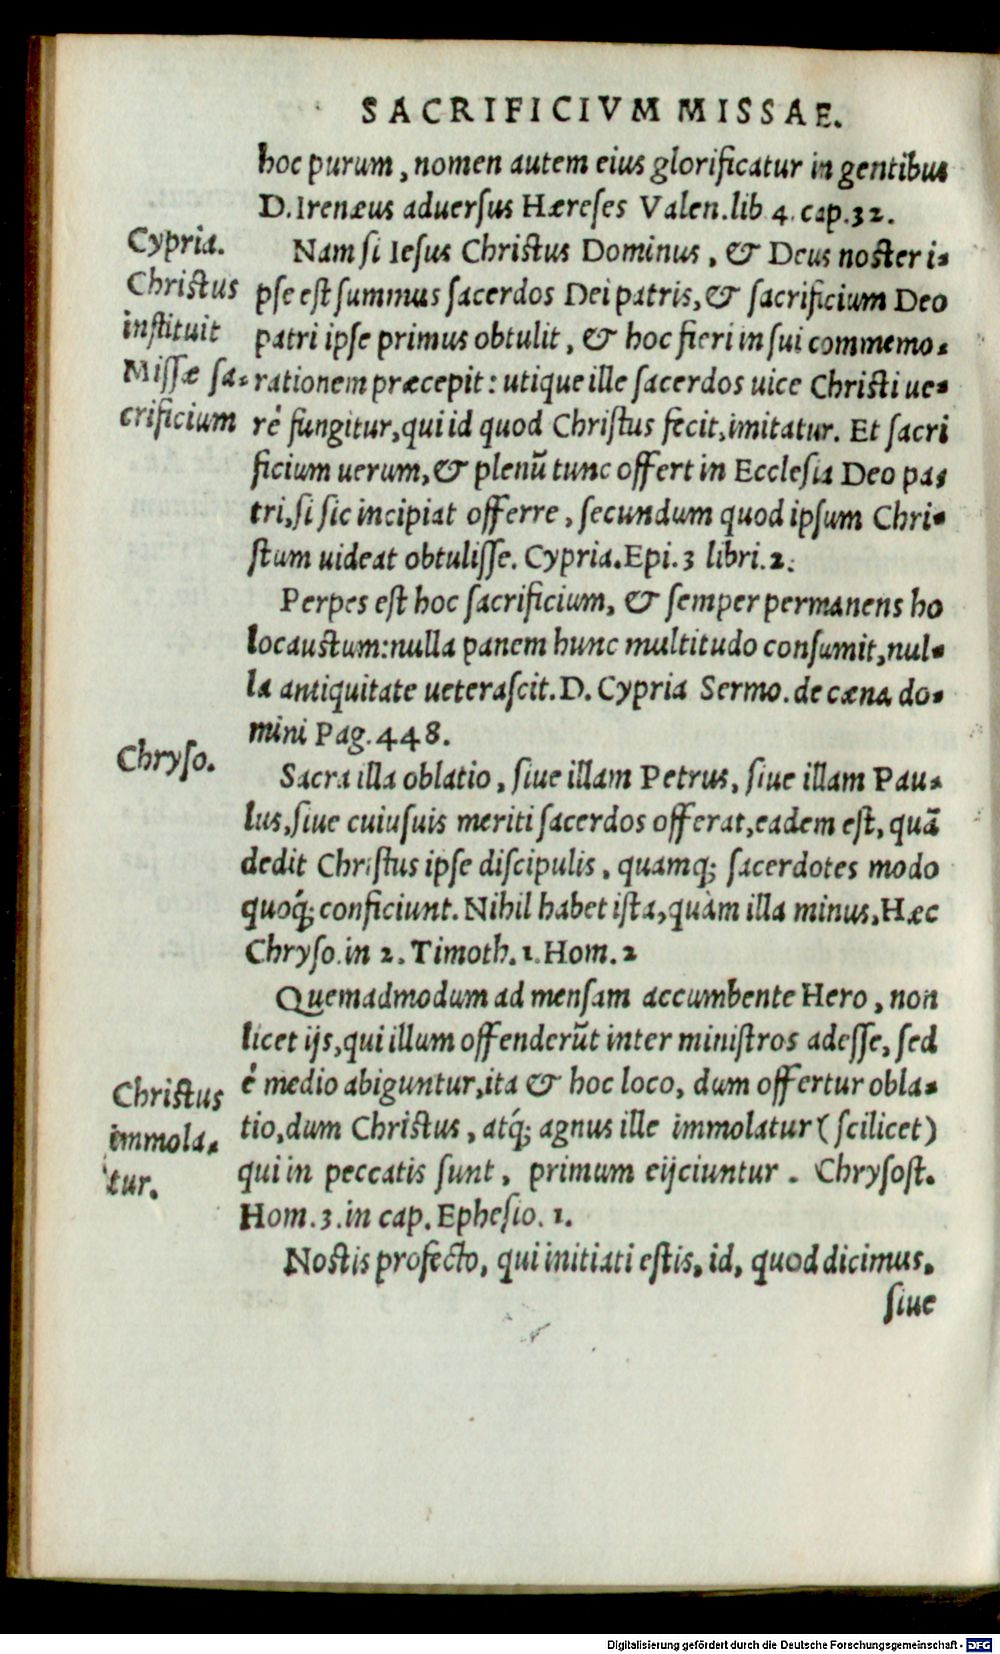 SACRIFICIVM MISSAE.
hoc purum, nomen autem eius glorificatur in gentibus
D. Irenæus aduersus Hæreses Valen. lib 4. cap. 32.
Cypria.
Christus
instituit
Missæ sa-
crificium
Nam si Iesus Christus Dominus, & Deus noster i-
pse est summus sacerdos Dei patris, & sacrificium Deo
patri ipse primus obtulit, & hoc fieri in sui commemo-
rationem præcepit: utique ille sacerdos uice Christi ue-
ré fungitur, qui id quod Christus fecit, imitatur. Et sacri
ficium uerum, & plenũ tunc offert in Ecclesia Deo pa-
tri, si sic incipiat offerre, secundum quod ipsum Chri-
stum uideat obtulisse. Cypria. Epi. 3 libri. 2.
Perpes est hoc sacrificium, & semper permanens ho
locaustum: nulla panem hunc multitudo consumit, nul-
la antiquitate ueterascit. D. Cypria Sermo. de cæna do-
mini Pag. 448.
Chryso.
Sacra illa oblatio, siue illam Petrus, siue illam Pau-
lus, siue cuiusuis meriti sacerdos offerat, eadem est, quã
dedit Christus ipse discipulis, quamq; sacerdotes modo
quoq́; conficiunt. Nihil habet ista, quàm illa minus, Hæc
Chryso. in 2. Timoth. 1. Hom. 2
Quemadmodum ad mensam accumbente Hero, non
licet ijs, qui illum offenderũt inter ministros adesse, sed
é medio abiguntur, ita & hoc loco, dum offertur obla-
tio, dum Christus, atq́; agnus ille immolatur (scilicet)
qui in peccatis sunt, primum eijciuntur. Chrysost.
Hom. 3. in cap. Ephesio. 1.
Christus
immola-
tur.
Nostis profecto, qui initiati estis, id, quod dicimus,
siue
Digitalisierung gefördert durch die Deutsche Forschungsgemeinschaft - DFG